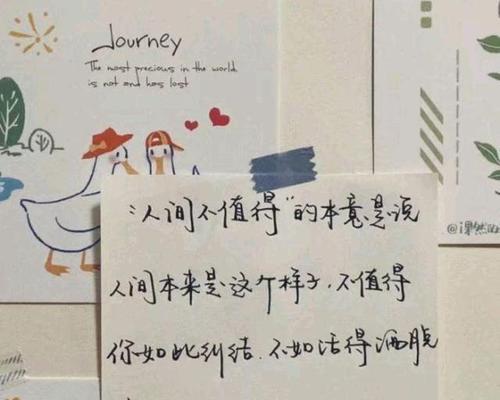 Journey
The most precious in the world
is not and has lost
"人间不值得"的本意是说
人间本来是这个样子,不值得
你如此纠结.不如活得洒脱